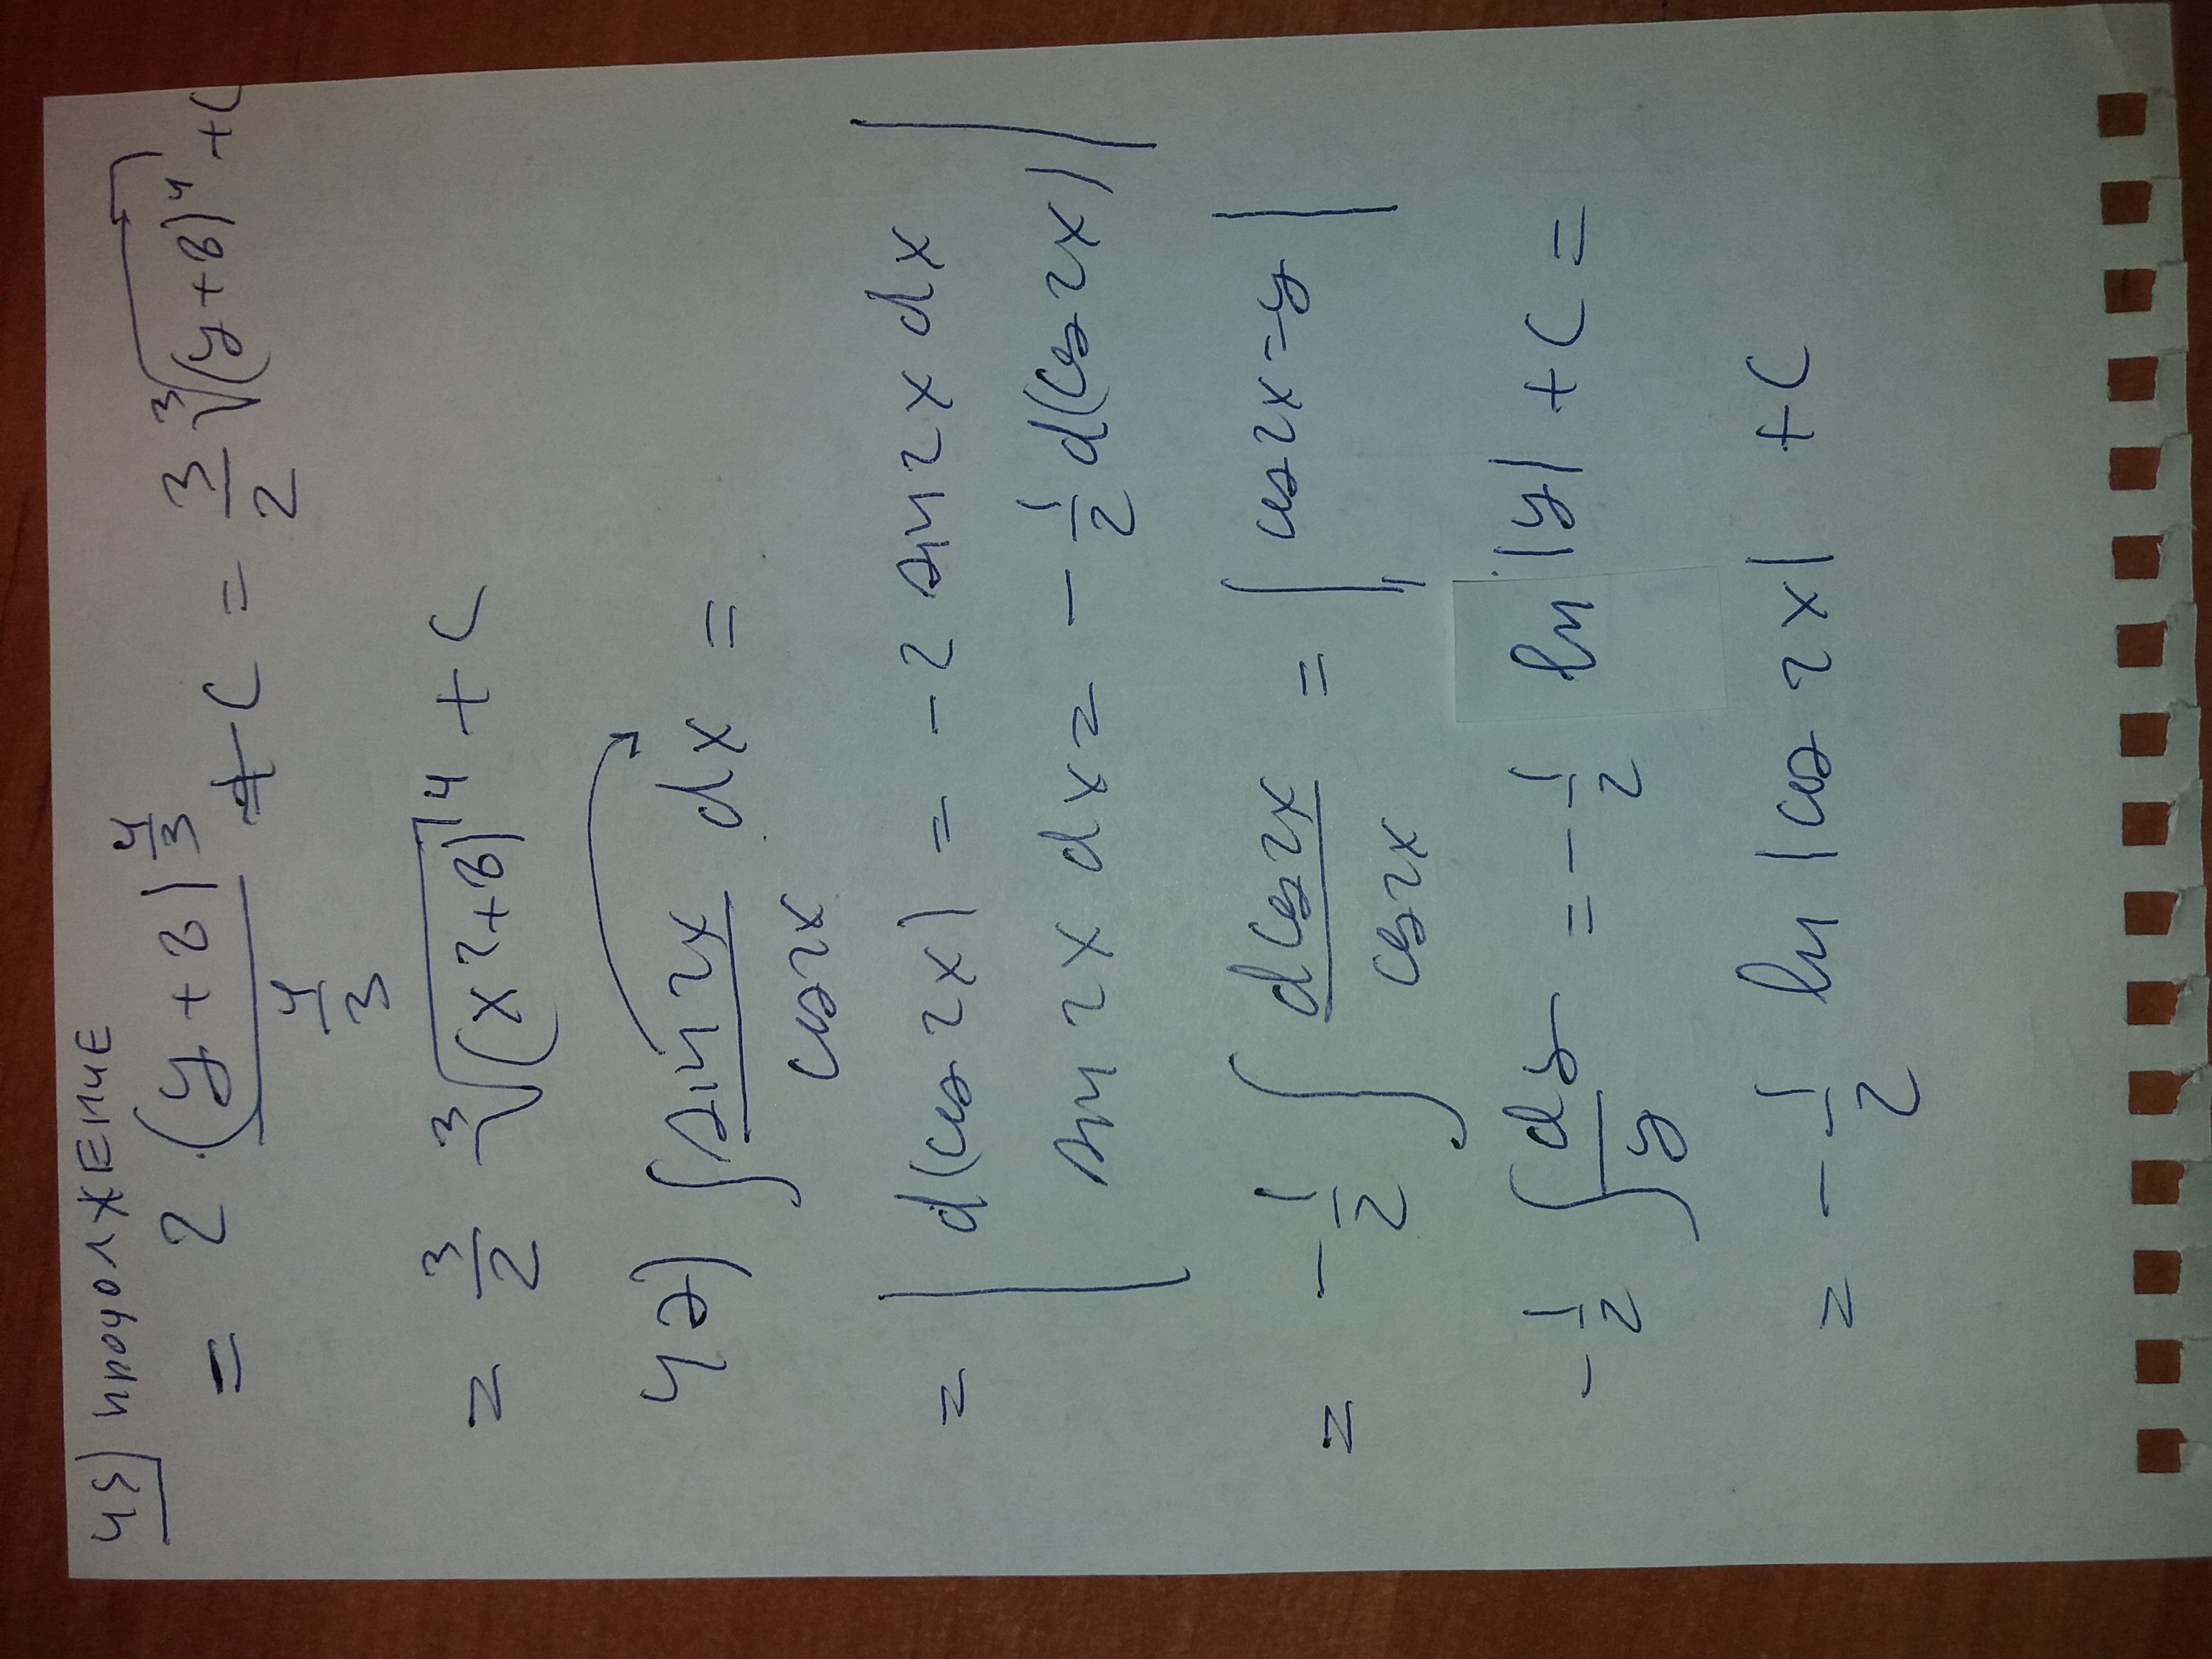 45) продолжение
= 2 · (y + 8)^{4/3} / (4/3) + C = 3/2 ∛(y+8)⁴ + C
= 3/2 ∛(x²+8)⁴ + C
42) ∫ sin 2x / cos 2x dx =
= | d(cos 2x) = -2 sin 2x dx
sin 2x dx = - 1/2 d(cos 2x) |
= - 1/2 ∫ d cos 2x / cos 2x = | cos 2x = y |
- 1/2 ∫ dy / y = - 1/2 ln |y| + C =
= - 1/2 ln |cos 2x| + C